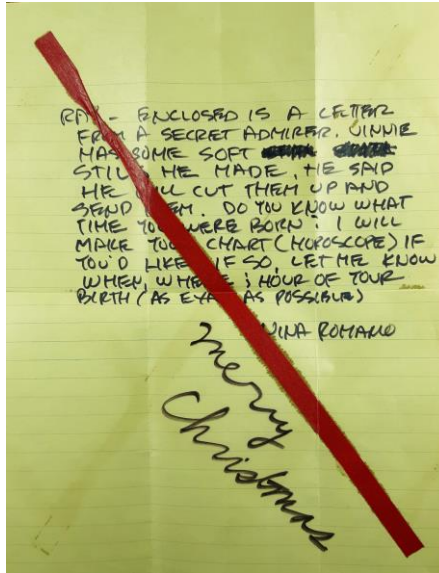 - ENCLOSED IS A LETTER
A SECRET ADMIRER. VINNIE
HAS SOME SOFT
HE MADE. HE SAID
HE CUT THEM UP AND
SEND . DO YOU KNOW WHAT
TIME YOU WERE BORN? I WILL
MAKE YOUR CHART (HOROSCOPE) IF
YOU'D LIKE. IF SO, LET ME KNOW
WHEN, WHERE & HOUR OF YOUR
BIRTH (AS AS POSSIBLE)
NINA ROMANO
Merry
Christmas